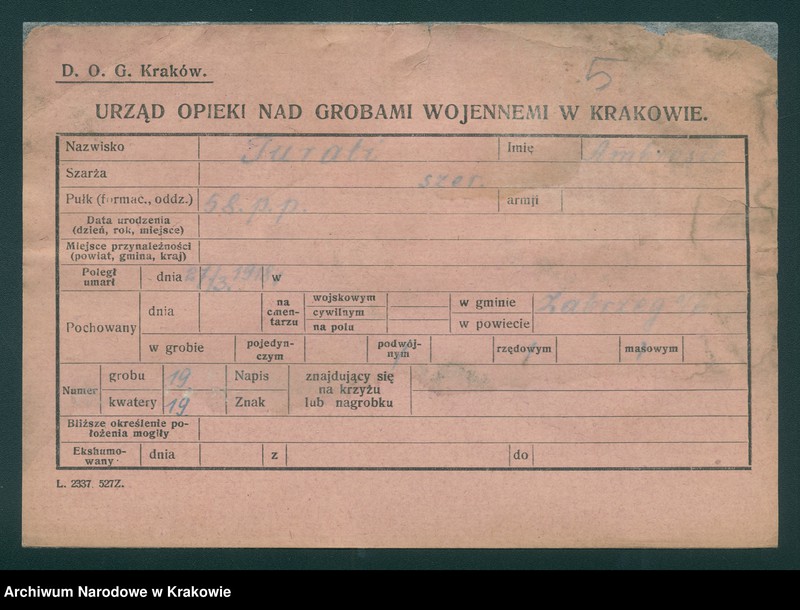 5
D. O. G. Kraków.
URZĄD OPIEKI NAD GROBAMI WOJENNEMI W KRAKOWIE.
Nazwisko Jurati Imię
Szarża szer.
Pułk (formac., oddz.) 58. p. p. armji
Data urodzenia
(dzień, rok, miejsce)
Miejsce przynależności
(powiat, gmina, kraj)
Poległ
umarł dnia w
Pochowany dnia na cmen-tarzu wojskowym cywilnym na polu w gminie
w powiecie
w grobie pojedyn-czym podwój-nym rzędowym masowym
Numer grobu 19 Napis znajdujący się
na krzyżu
kwatery 19. Znak lub nagrobku
Bliższe określenie po-
łożenia mogiły
Ekshumo-
wany dnia z do
L. 2337. 527Z.
Archiwum Narodowe w Krakowie